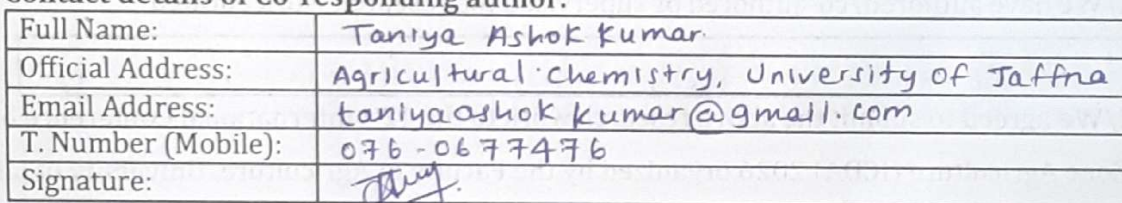 Contact details of co-responding author:
Full Name: Taniya Ashok Kumar.
Official Address: Agricultural Chemistry, University of Jaffna
Email Address: taniyaashokkumar@gmail.com
T. Number (Mobile): 076-0677476
Signature: